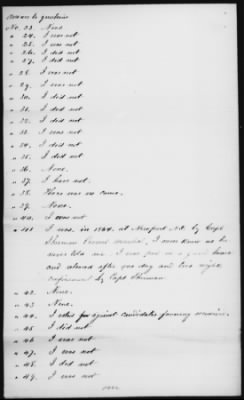 Answer to questions
No. 23. None
" 24. I was not
" 25. I was not
" 26. I did not
" 27. I did not
" 28. I was not
" 29. I was not
" 30. I did not
" 31. I did not
" 32. I did not
" 33. I was not
" 34. I did not
" 35. I did not
" 36. None.
" 37. I have not.
" 38. There was no
" 39. None.
" 40. I was not
" 41. I was, in 1864, at Newport N.C. by Capt
I never knew as he
never told me. I was put in a guard house
and released after one day and two nights
confinement by Capt
" 42. None.
" 43. None.
" 44. I voted for against candidates favoring secession.
" 45. I did not
" 46. I was not
" 47. I was not
" 48. I did not
" 49. I was not